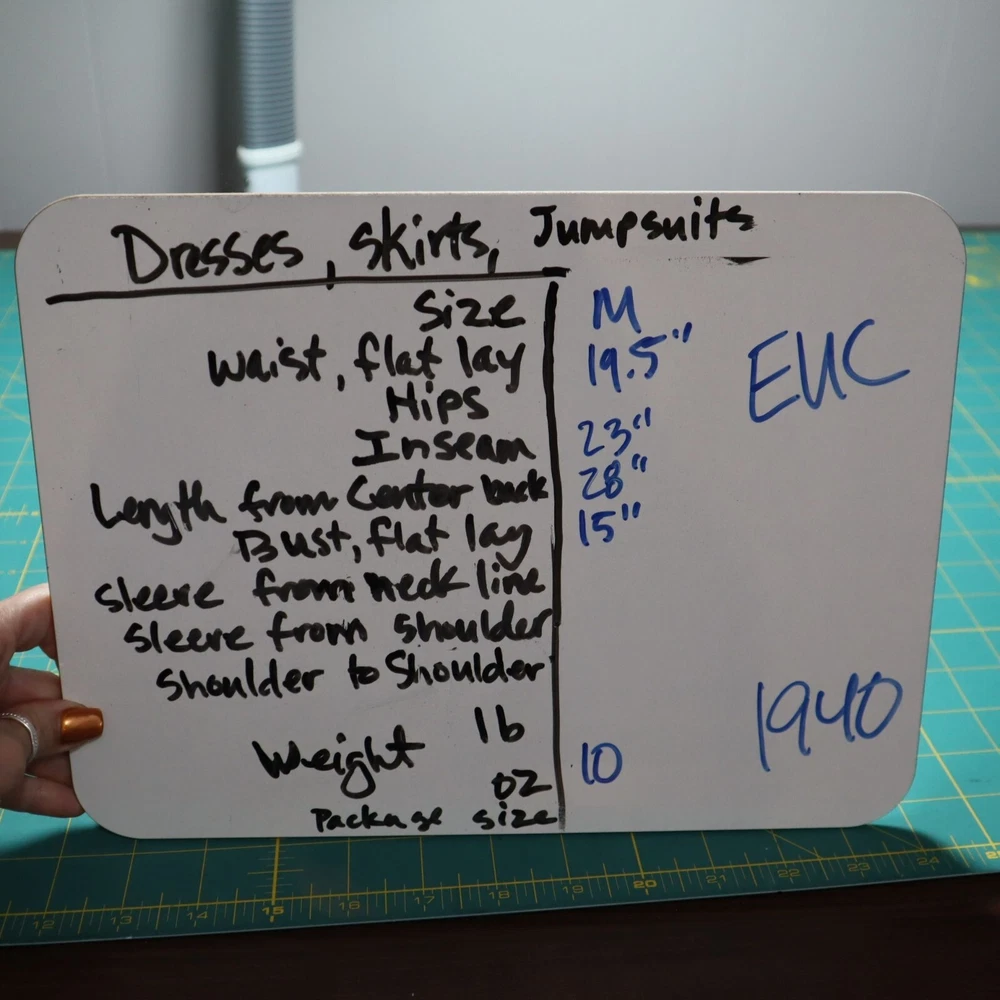 Dresses, skirts, Jumpsuits
Size M
waist, flat lay 19.5"
EUC
Hips 23"
Inseam 28"
Length from Center back 15"
Bust, flat lay
sleeve from neck line
sleeve from shoulder
shoulder to Shoulder
1940
lb
Weight
oz 10
Package size
12 13 14 15 16 17 18 19 20 21 22 23 24